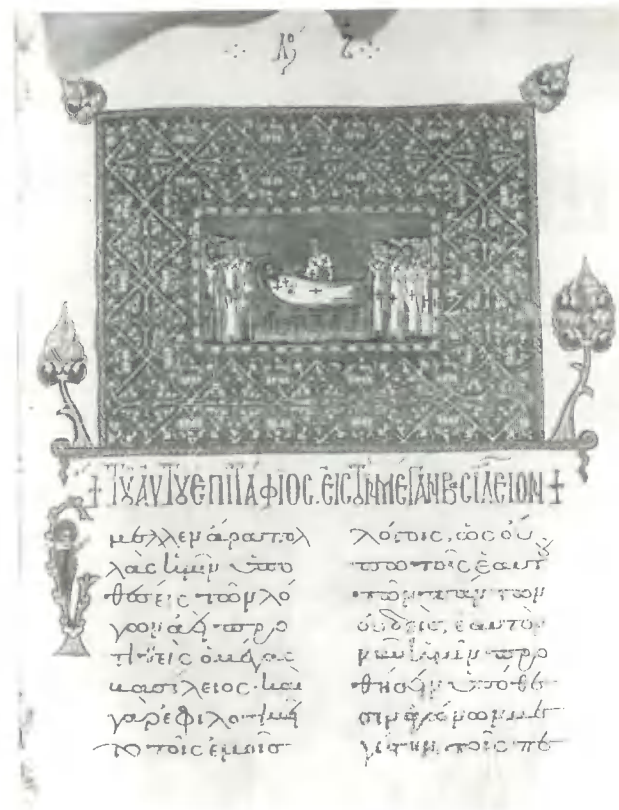 Λοʹ Ζ
+ ΤȢ ΑΥΤȢ ΕΠΙΤΑΦΙΟC. ΕΙC ΤΟΝ ΜΕΓΑΝ ΒΑCΙΛΕΙΟΝ +
Ἔμελλεν ἄρα πολ
λὰς ἡμῖν ὑπο
θέσεις τῶν λό
γων ἀεὶ προ
τιθεὶς ὁ μέγας
βασίλειος· καὶ
γὰρ ἐφιλοτιμεῖ
το τοῖς ἐμοῖς
λόγοις, ὡς οὔ
πω τοῖς ἑαυτȢ
τῶν πάντων
οὐδεὶς, ἑαυτὸν
νῦν ἡμῖν προ
θήσειν ὑπόθε
σιν ἀγώνων με
γίστην τοῖς πε